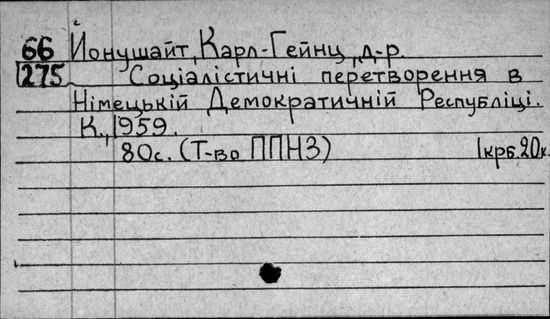 66 Йонушайт, Карл-Гейнц, д-р.
275 Соціалістичні перетворення в
Німецькій Демократичній Республіці.
К., 1959.
80с. (Т-во ППНЗ) 1крб.20к.